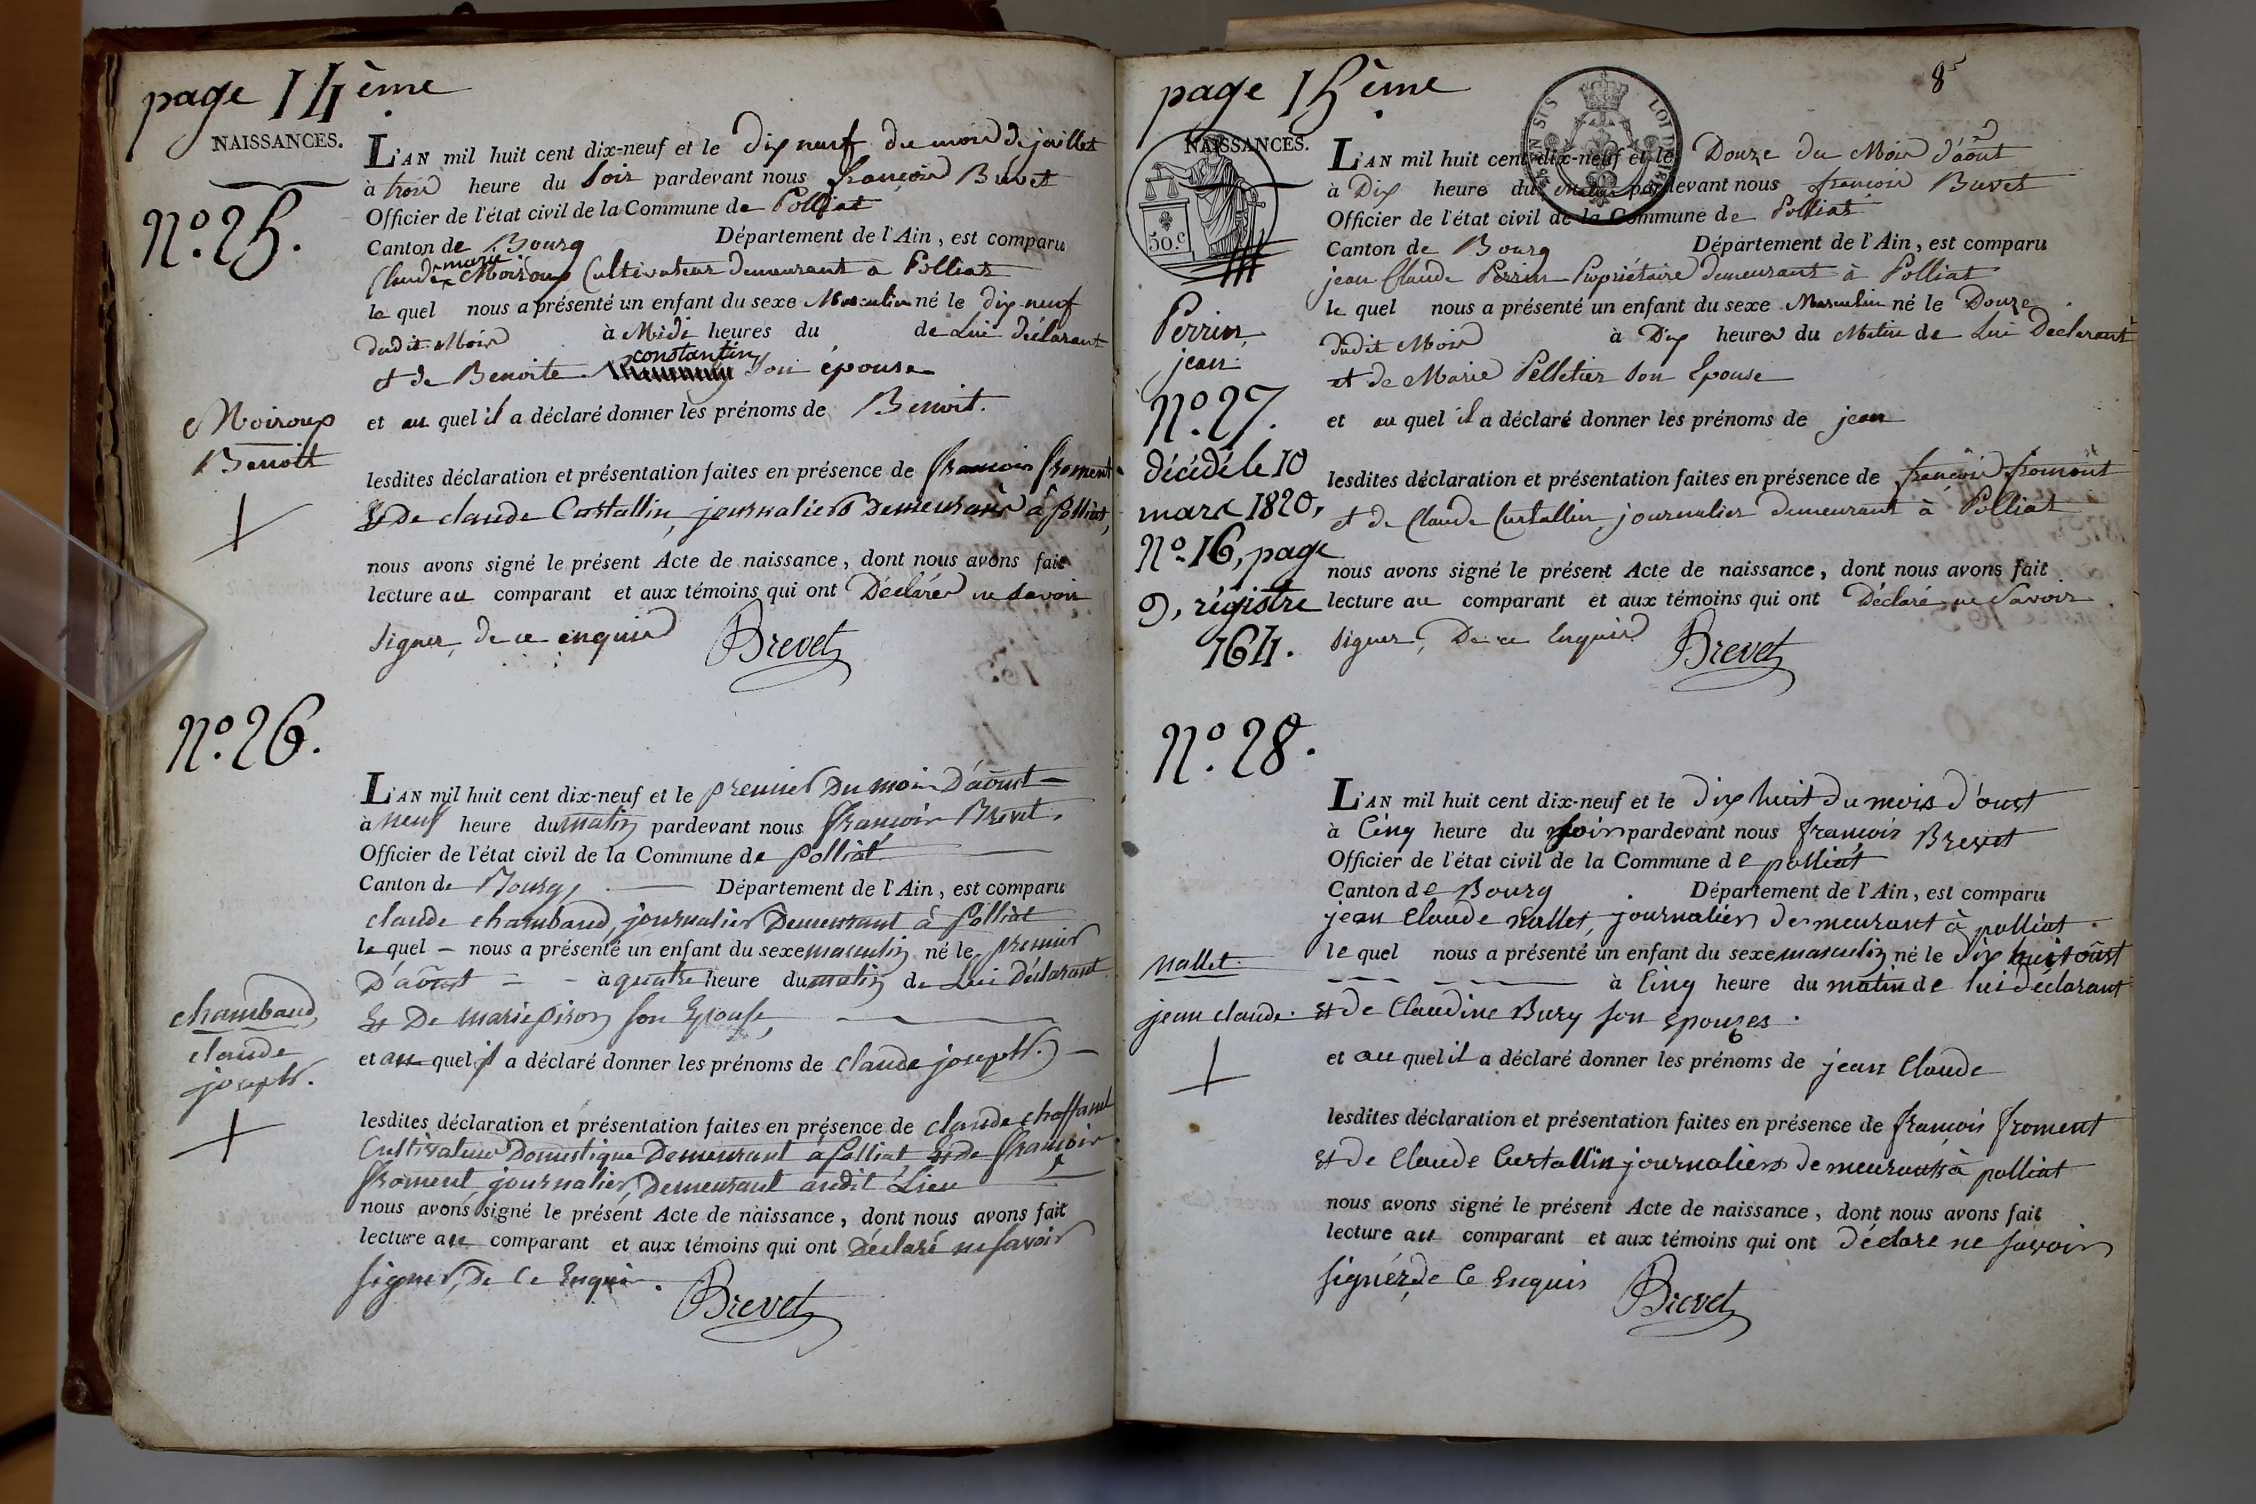 page 14ème
NAISSANCES.
N.º 25.
L'AN mil huit cent dix-neuf et le dix neuf du mois de juillet
à trois heure du soir pardevant nous françois Brevet
Officier de l'état civil de la Commune de Polliat
Canton de Bourg Département de l'Ain, est comparu
marie
Claude Moiroux Cultivateur demeurant a Polliat
le quel nous a présenté un enfant du sexe Masculin né le dix-neuf
dudit Mois à Midi heures du de Lui déclarant
constantin
et de Benoite son épouse
Moiroux
Benoit
et au quel il a déclaré donner les prénoms de Benoit.
lesdites déclaration et présentation faites en présence de françois froment
Et De claude Curtallin, journaliers Demeurans à Polliat,
nous avons signé le présent Acte de naissance, dont nous avons fait
lecture au comparant et aux témoins qui ont Déclarés ne savoir
signer, de ce enquis Brevet
N.º 26.
L'AN mil huit cent dix-neuf et le premier Du mois D'aoust
à neuf heure du matin pardevant nous françois Brevet.
Officier de l'état civil de la Commune de Polliat
Canton de Bourg, Département de l'Ain, est comparu
claude chambaud, journalier Demeurant à Polliat
le quel nous a présenté un enfant du sexe masculin né le premier
D'aoust à quatre heure du matin de Lui Déclarant
Et De marie piron son Epouse,
chambaud,
claude
joseph.
et au quel il a déclaré donner les prénoms de claude joseph.
lesdites déclaration et présentation faites en présence de claude chaffanel
Cultivateur Domestique Demeurant à Polliat Et de françois
froment journalier, Demeurant audit Lieu
nous avons signé le présent Acte de naissance, dont nous avons fait
lecture au comparant et aux témoins qui ont Déclaré ne savoir
signer, De Ce Enquis. Brevet
page 15ème
8
NAISSANCES.
50.c
L'AN mil huit cent dix-neuf et le Douze du Mois d'août
à Dix heure du matin pardevant nous françois Brevet
Officier de l'état civil de la Commune de Polliat
Canton de Bourg Département de l'Ain, est comparu
jean Claude Perrin Propriétaire demeurant à Polliat
le quel nous a présenté un enfant du sexe Masculin né le Douze
dudit Mois à Dix heures du Matin de Lui Déclarant
et de Marie Pelletier son Epouse
Perrin
jean
N.º 27.
décédé le 10
mars 1820,
N.º 16, page
9, régistre
164.
et au quel il a déclaré donner les prénoms de jean
lesdites déclaration et présentation faites en présence de françois froment
et de Claude Curtallin, journalier demeurant à Polliat
nous avons signé le présent Acte de naissance, dont nous avons fait
lecture au comparant et aux témoins qui ont Déclaré ne Savoir
signer, De ce Enquis Brevet
N.º 28.
L'AN mil huit cent dix-neuf et le dix huit du mois d'oust
à Cinq heure du soir pardevant nous françois Brevet
Officier de l'état civil de la Commune de polliat
Canton de Bourg Département de l'Ain, est comparu
jean Claude nallet, journalier demeurant à polliat
le quel nous a présenté un enfant du sexe masculin né le dix huit oust
à Cinq heure du matin de lui déclarant
Et de Claudine Bury son Epouzes.
nallet.
jean claude.
et au quel il a déclaré donner les prénoms de jean Claude
lesdites déclaration et présentation faites en présence de françois froment
Et de Claude Curtallin journaliers demeurants à polliat
nous avons signé le présent Acte de naissance, dont nous avons fait
lecture au comparant et aux témoins qui ont déclare ne savoir
signér, de Ce Enquis Brevet